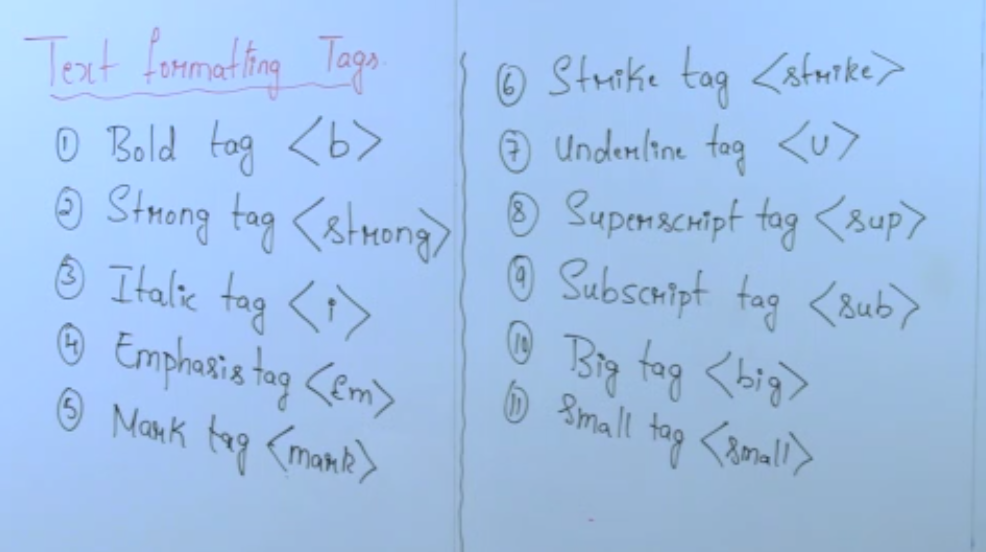 Text formatting Tags.
① Bold tag <b>
② Strong tag <strong>
③ Italic tag <i>
④ Emphasis tag <Em>
⑤ Mark tag <mark>
⑥ Strike tag <strike>
⑦ Underline tag <u>
⑧ Superscript tag <sup>
⑨ Subscript tag <sub>
⑩ Big tag <big>
⑪ Small tag <small>